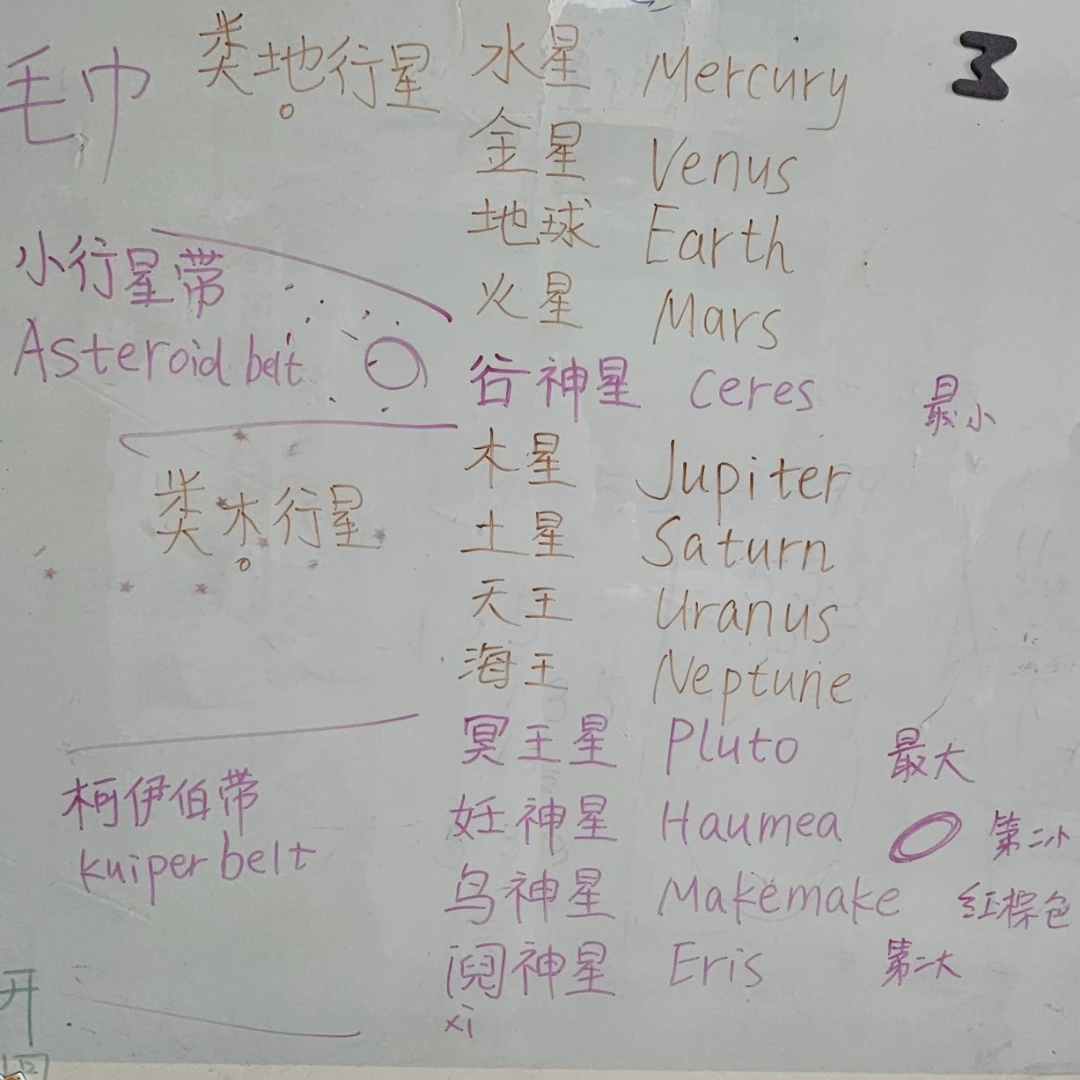 毛巾
类地行星
水星 Mercury
金星 Venus
地球 Earth
火星 Mars
小行星带
Asteroid belt
谷神星 Ceres 最小
类木行星
木星 Jupiter
土星 Saturn
天王 Uranus
海王 Neptune
冥王星 Pluto 最大
柯伊伯带
kuiper belt
妊神星 Haumea 第二小
鸟神星 Makemake 红棕色
阋神星 Eris 第二大
xi
开